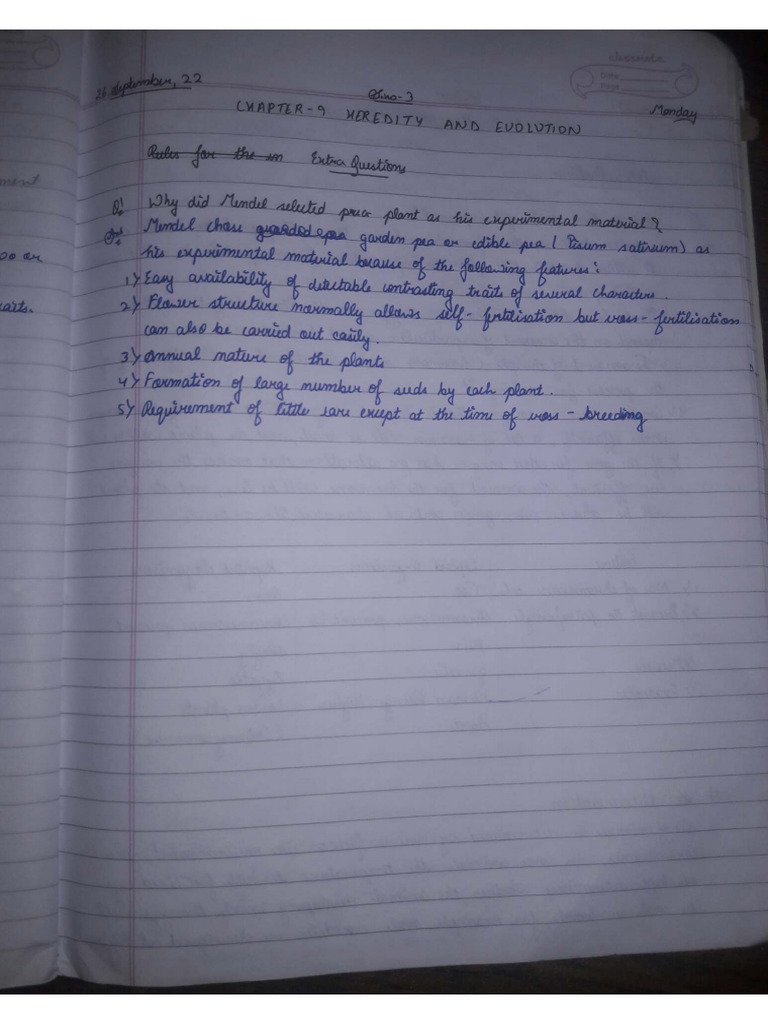 classmate
Date
Page
26 September, 22
Monday
CHAPTER-9 HEREDITY AND EVOLUTION
Rules for the Extra Questions
Q1 Why did Mendel selected pea plant as his experimental material?
Ans Mendel chose garden pea or edible pea (Pisum sativum) as
his experimental material because of the following features:
1) Easy availability of detectable contrasting traits of several characters.
2) Flower structure normally allows self-fertilisation but cross-fertilisation
can also be carried out easily.
3) Annual nature of the plants
4) Formation of large number of seeds by each plant.
5) Requirement of little care except at the time of cross-breeding